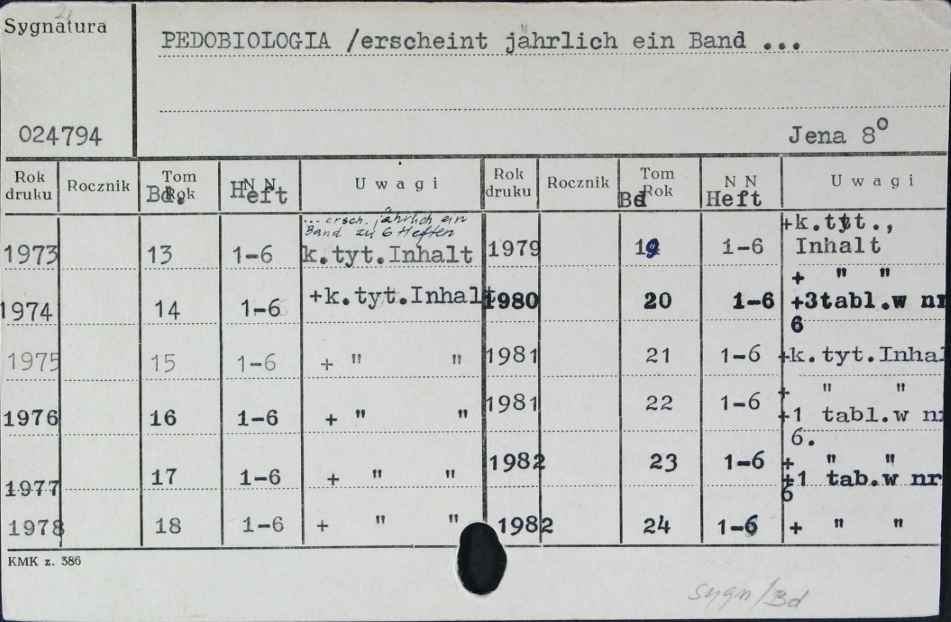 Sygnatura
PEDOBIOLOGIA /erscheint jährlich ein Band ...
024794
Jena 8°
Rok druku Rocznik Tom Rok Bd. N N Heft Uwagi Rok druku Rocznik Tom Rok Bd N N Heft Uwagi
1973 13 1-6 ...ersch. jährlich ein
Band zu 6 Heften
k.tyt.Inhalt
1974 14 1-6 +k.tyt.Inhalt
1975 15 1-6 + " "
1976 16 1-6 + " "
1977 17 1-6 + " "
1978 18 1-6 + " "
1979 19 1-6 +k.tyt.,
Inhalt
1980 20 1-6 + " "
+3tabl.w nr
6
1981 21 1-6 +k.tyt.Inhal
1981 22 1-6 + " "
+1 tabl.w nr
6.
1982 23 1-6 + " "
+1 tab.w nr
6
1982 24 1-6 + " "
KMK z. 386
sygn/Bd